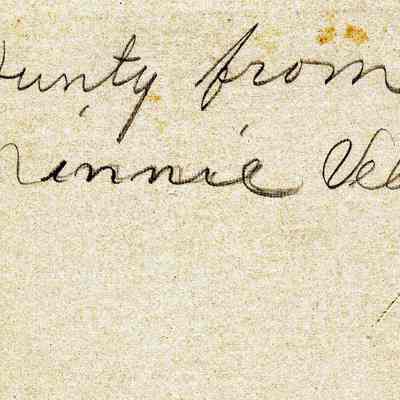 unty from
innie Vel